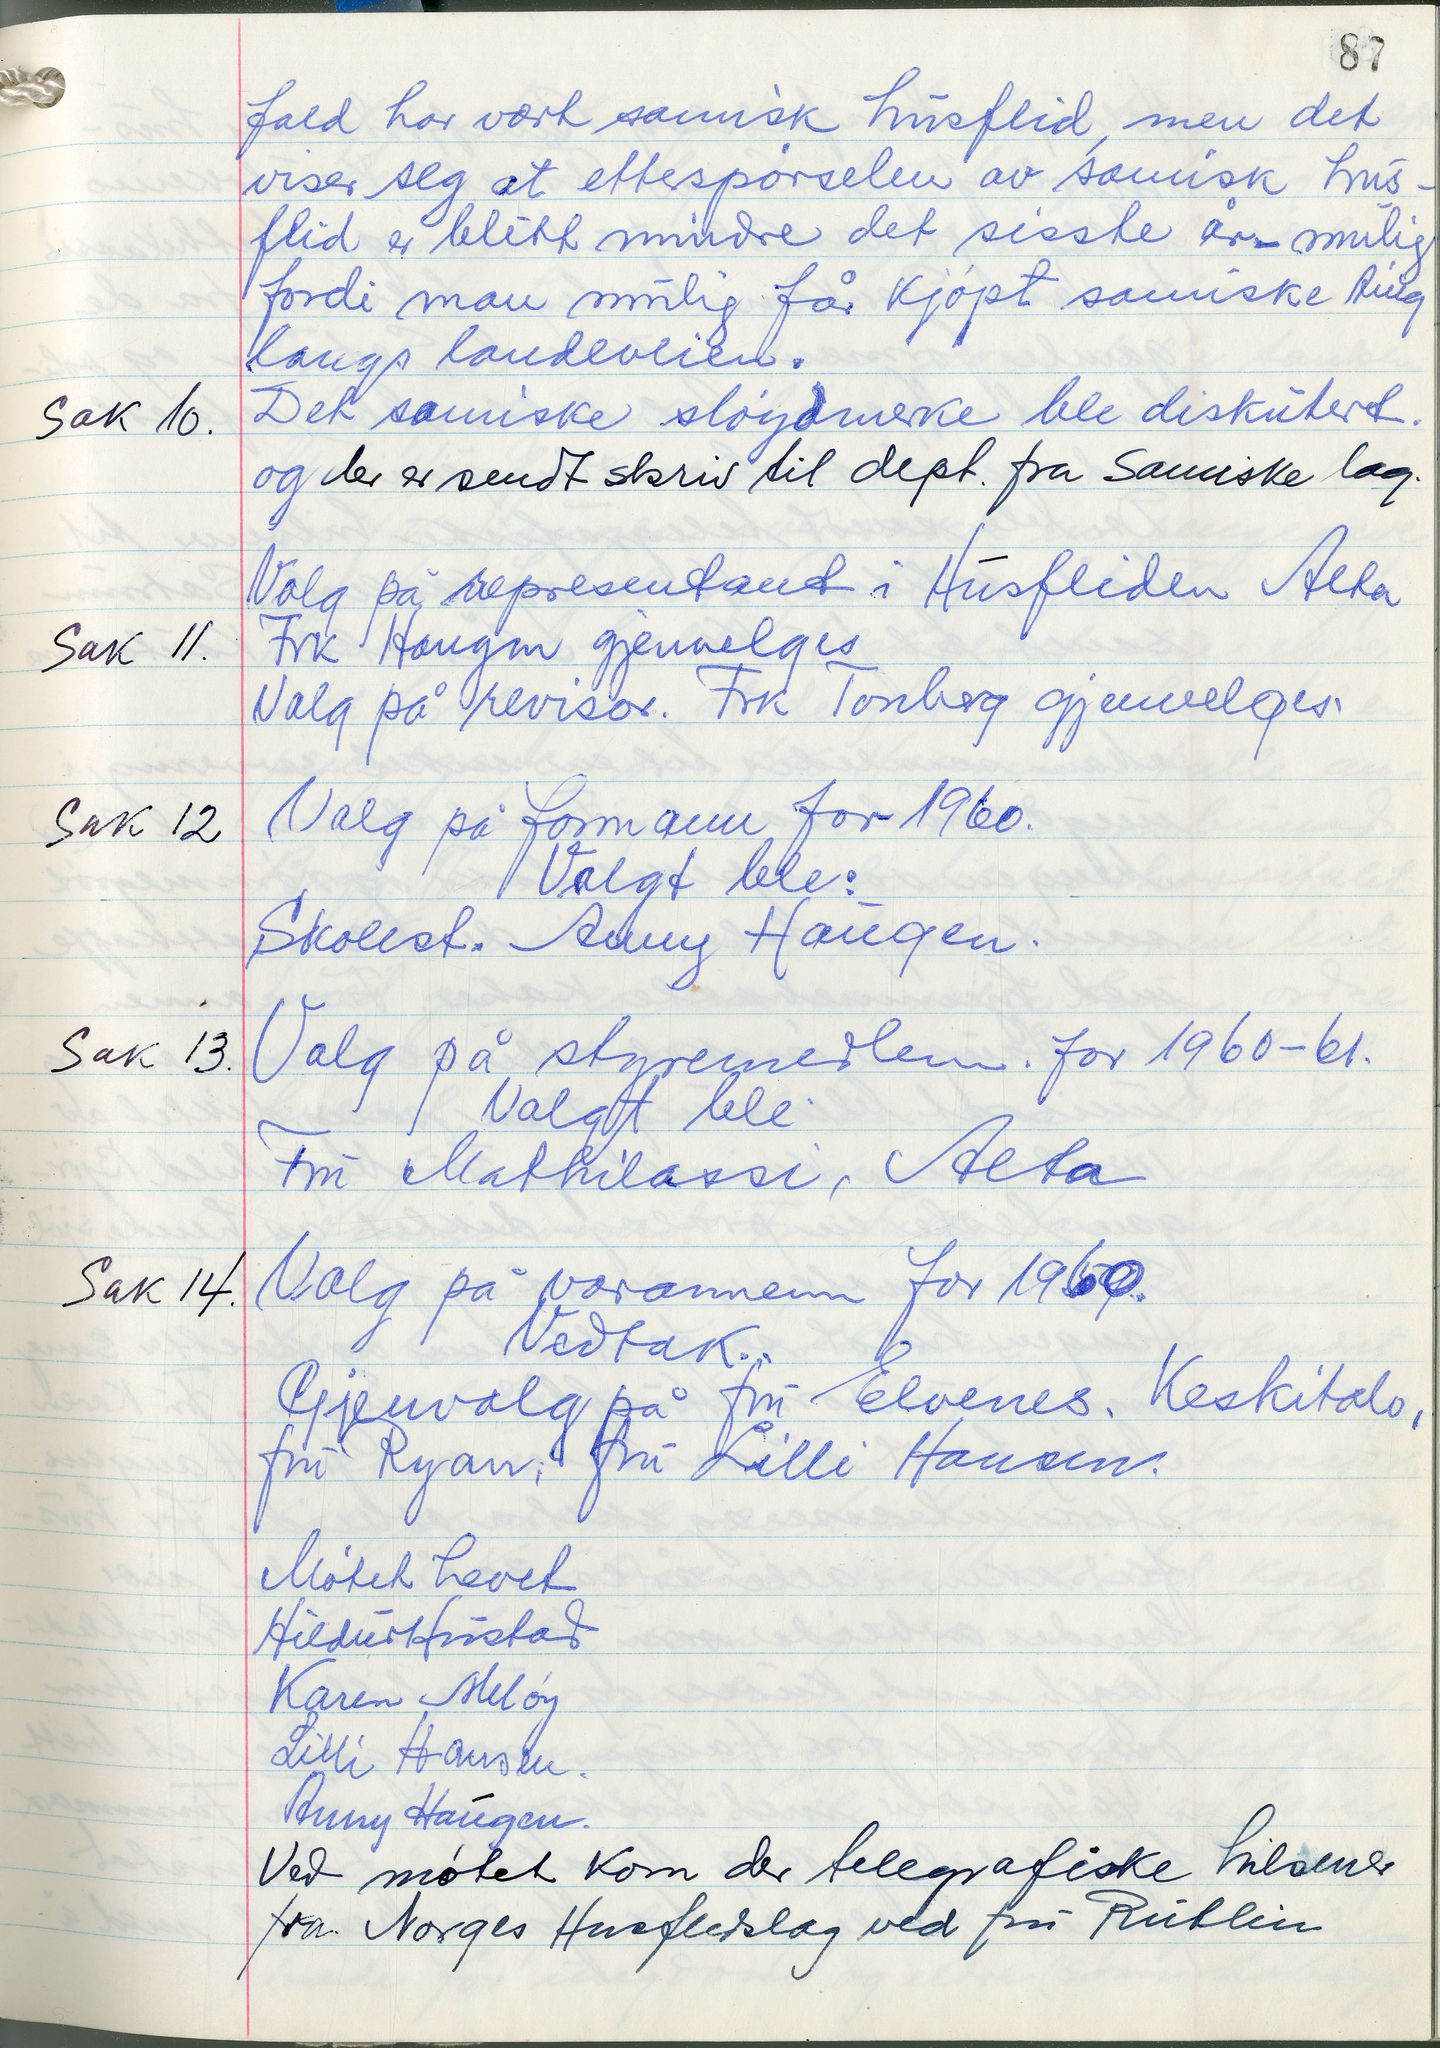 87
fald har vært samisk husflid, men det
viser seg at etterspørselen av samisk hus-
flid er blitt mindre det sisste år - mulig
fordi man mulig får kjøpt samiske ting
langs landeveien.
Sak 10. Det samiske sløydmerke ble diskutert.
og der er sendt skriv til dept. fra Samiske lag.
Valg på representant i Husfliden Alta
Sak 11. Frk Haugen gjenvelges
Valg på revisor. Frk Tonberg gjenvelges.
Sak 12 Valg på formann for 1960.
Valgt ble:
Skolest. Anny Haugen.
Sak 13. Valg på styremedlem. for 1960-61.
Valgt ble
Fru Mathilassi, Alta
Sak 14. Valg på varamenn for 1960.
Vedtak..
Gjenvalg på fru Elvenes. Keskitalo,
fru Ryan, fru Lilli Hansen.
Møtet hevet
Hildur Hustad
Karen Meløy
Lilli Hansen.
Anny Haugen.
Ved møtet kom der telegrafiske hilsener
fra Norges Husflidslag ved fru Rutlin